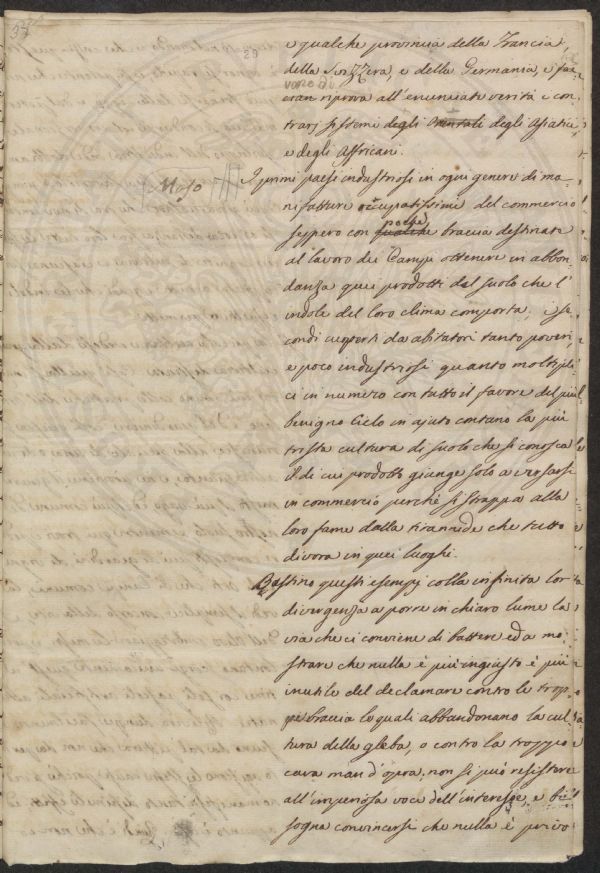 29
e qualche provincia della Francia,
della Svizzera, e della Germania, e fac
cian riprova all'enunciate verità e con
trarj sistemi degli Orientali degli Asiatici
e degli Affricani.
Moso I primi paesi industriosi in ogni genere di ma-
nifatture occupatissimi del commercio
seppero con qualche poche braccia destinate
al lavoro dei Campi ottenere in abbon
danza quei prodotti dal suolo che l'
indole del loro clima comporta; i se
condi coperti da abitatori tanto poveri,
e poco industriosi quanto moltipli
ci in numero con tutto il favore del più
benigno Cielo in ajuto contano la più
trista cultura di suolo che si conosca
il di cui prodotto giunge solo a versarsi
in commercio perché si strappa alla
loro fame dalla tirannide che tutto
divora in quei luoghi.
Bastino questi esempj colla infinita lor
divergenza a porre in chiaro lume la
via che ci conviene di battere ed a mo
strare che nulla è più ingiusto è più
inutile del declamare contro le trop
pe braccia le quali abbandonano la cul
tura della gleba, o contro la troppo
cara man d'opra, non si può resistere
all'imperiosa voce dell'interesse, e bi
sogna convincersi che nulla è privo